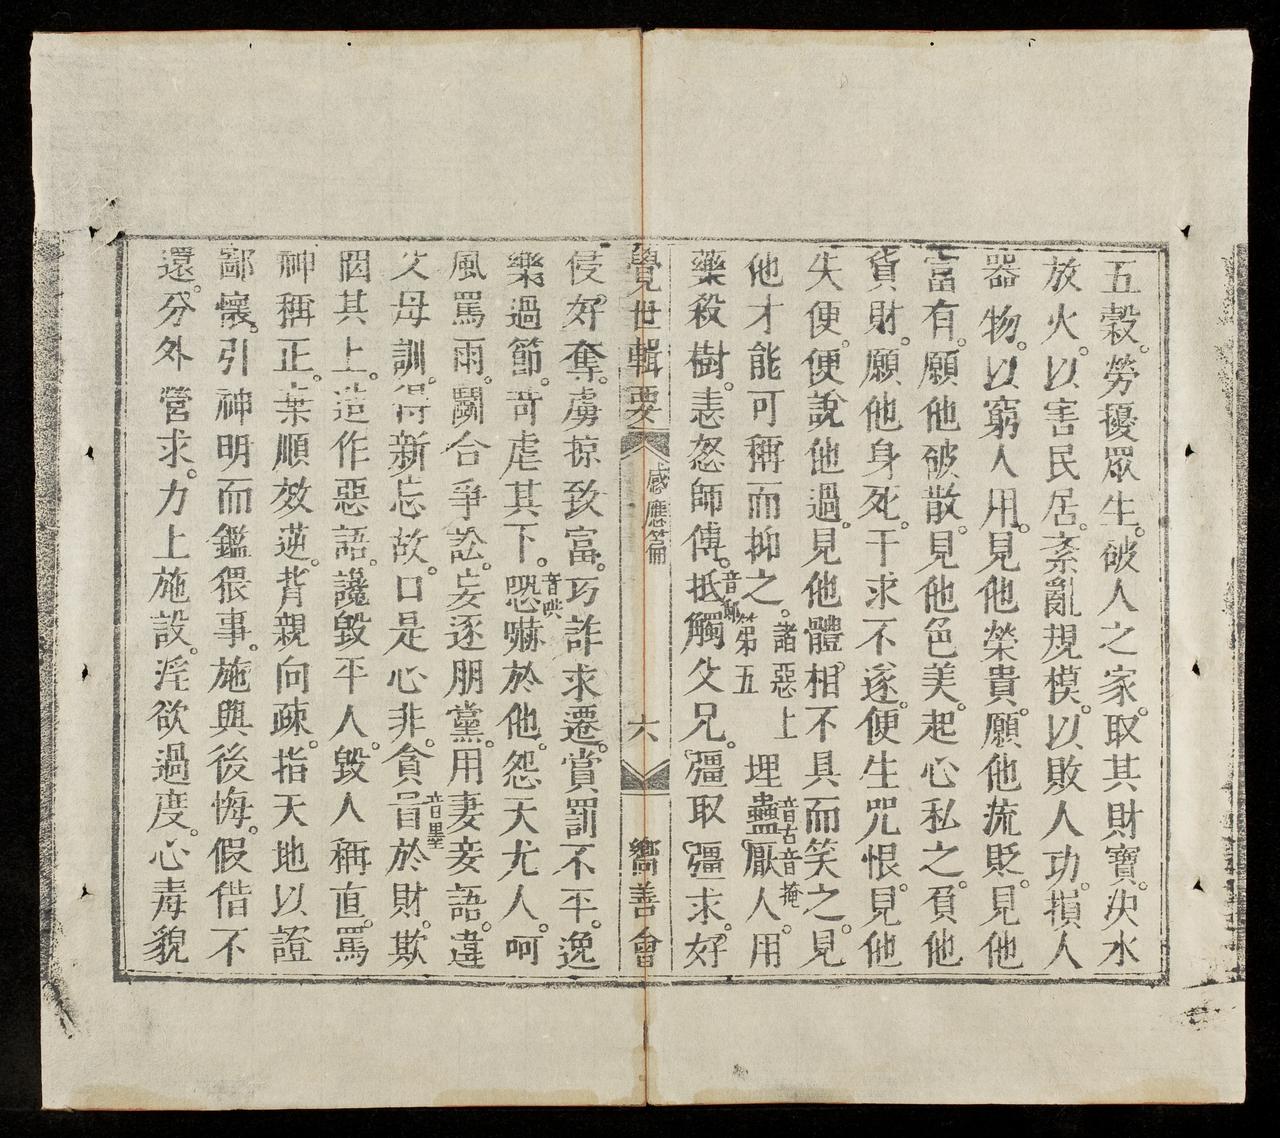 五穀。勞擾眾生。破人之家。取其財寶。決水
放火。以害民居。紊亂規模。以敗人功。損人
器物。以窮人用。見他榮貴。願他流貶。見他
富有。願他破散。見他色美。起心私之。負他
貨財。願他身死。干求不遂。便生咒恨。見他
失便。便說他過。見他體相不具而笑之。見
他才能可稱而抑之。諸惡上第五 埋蠱音古厭音掩人。用
藥殺樹。恚怒師傅。抵音邸觸父兄。彊取彊求。好
覺世輯要 感應篇 六 嚮善會
侵好奪。虜掠致富。巧詐求遷。賞罰不平。逸
樂過節。苛虐其下。恐音哄嚇於他。怨天尤人。呵
風罵雨。鬬合爭訟。妄逐朋黨。用妻妾語。違
父母訓。得新忘故。口是心非。貪冒音墨於財。欺
罔其上。造作惡語。讒毀平人。毀人稱直。罵
神稱正。棄順效逆。背親向疎。指天地以證
鄙懷。引神明而鑑猥事。施與後悔。假借不
還。分外營求。力上施設。淫欲過度。心毒貌